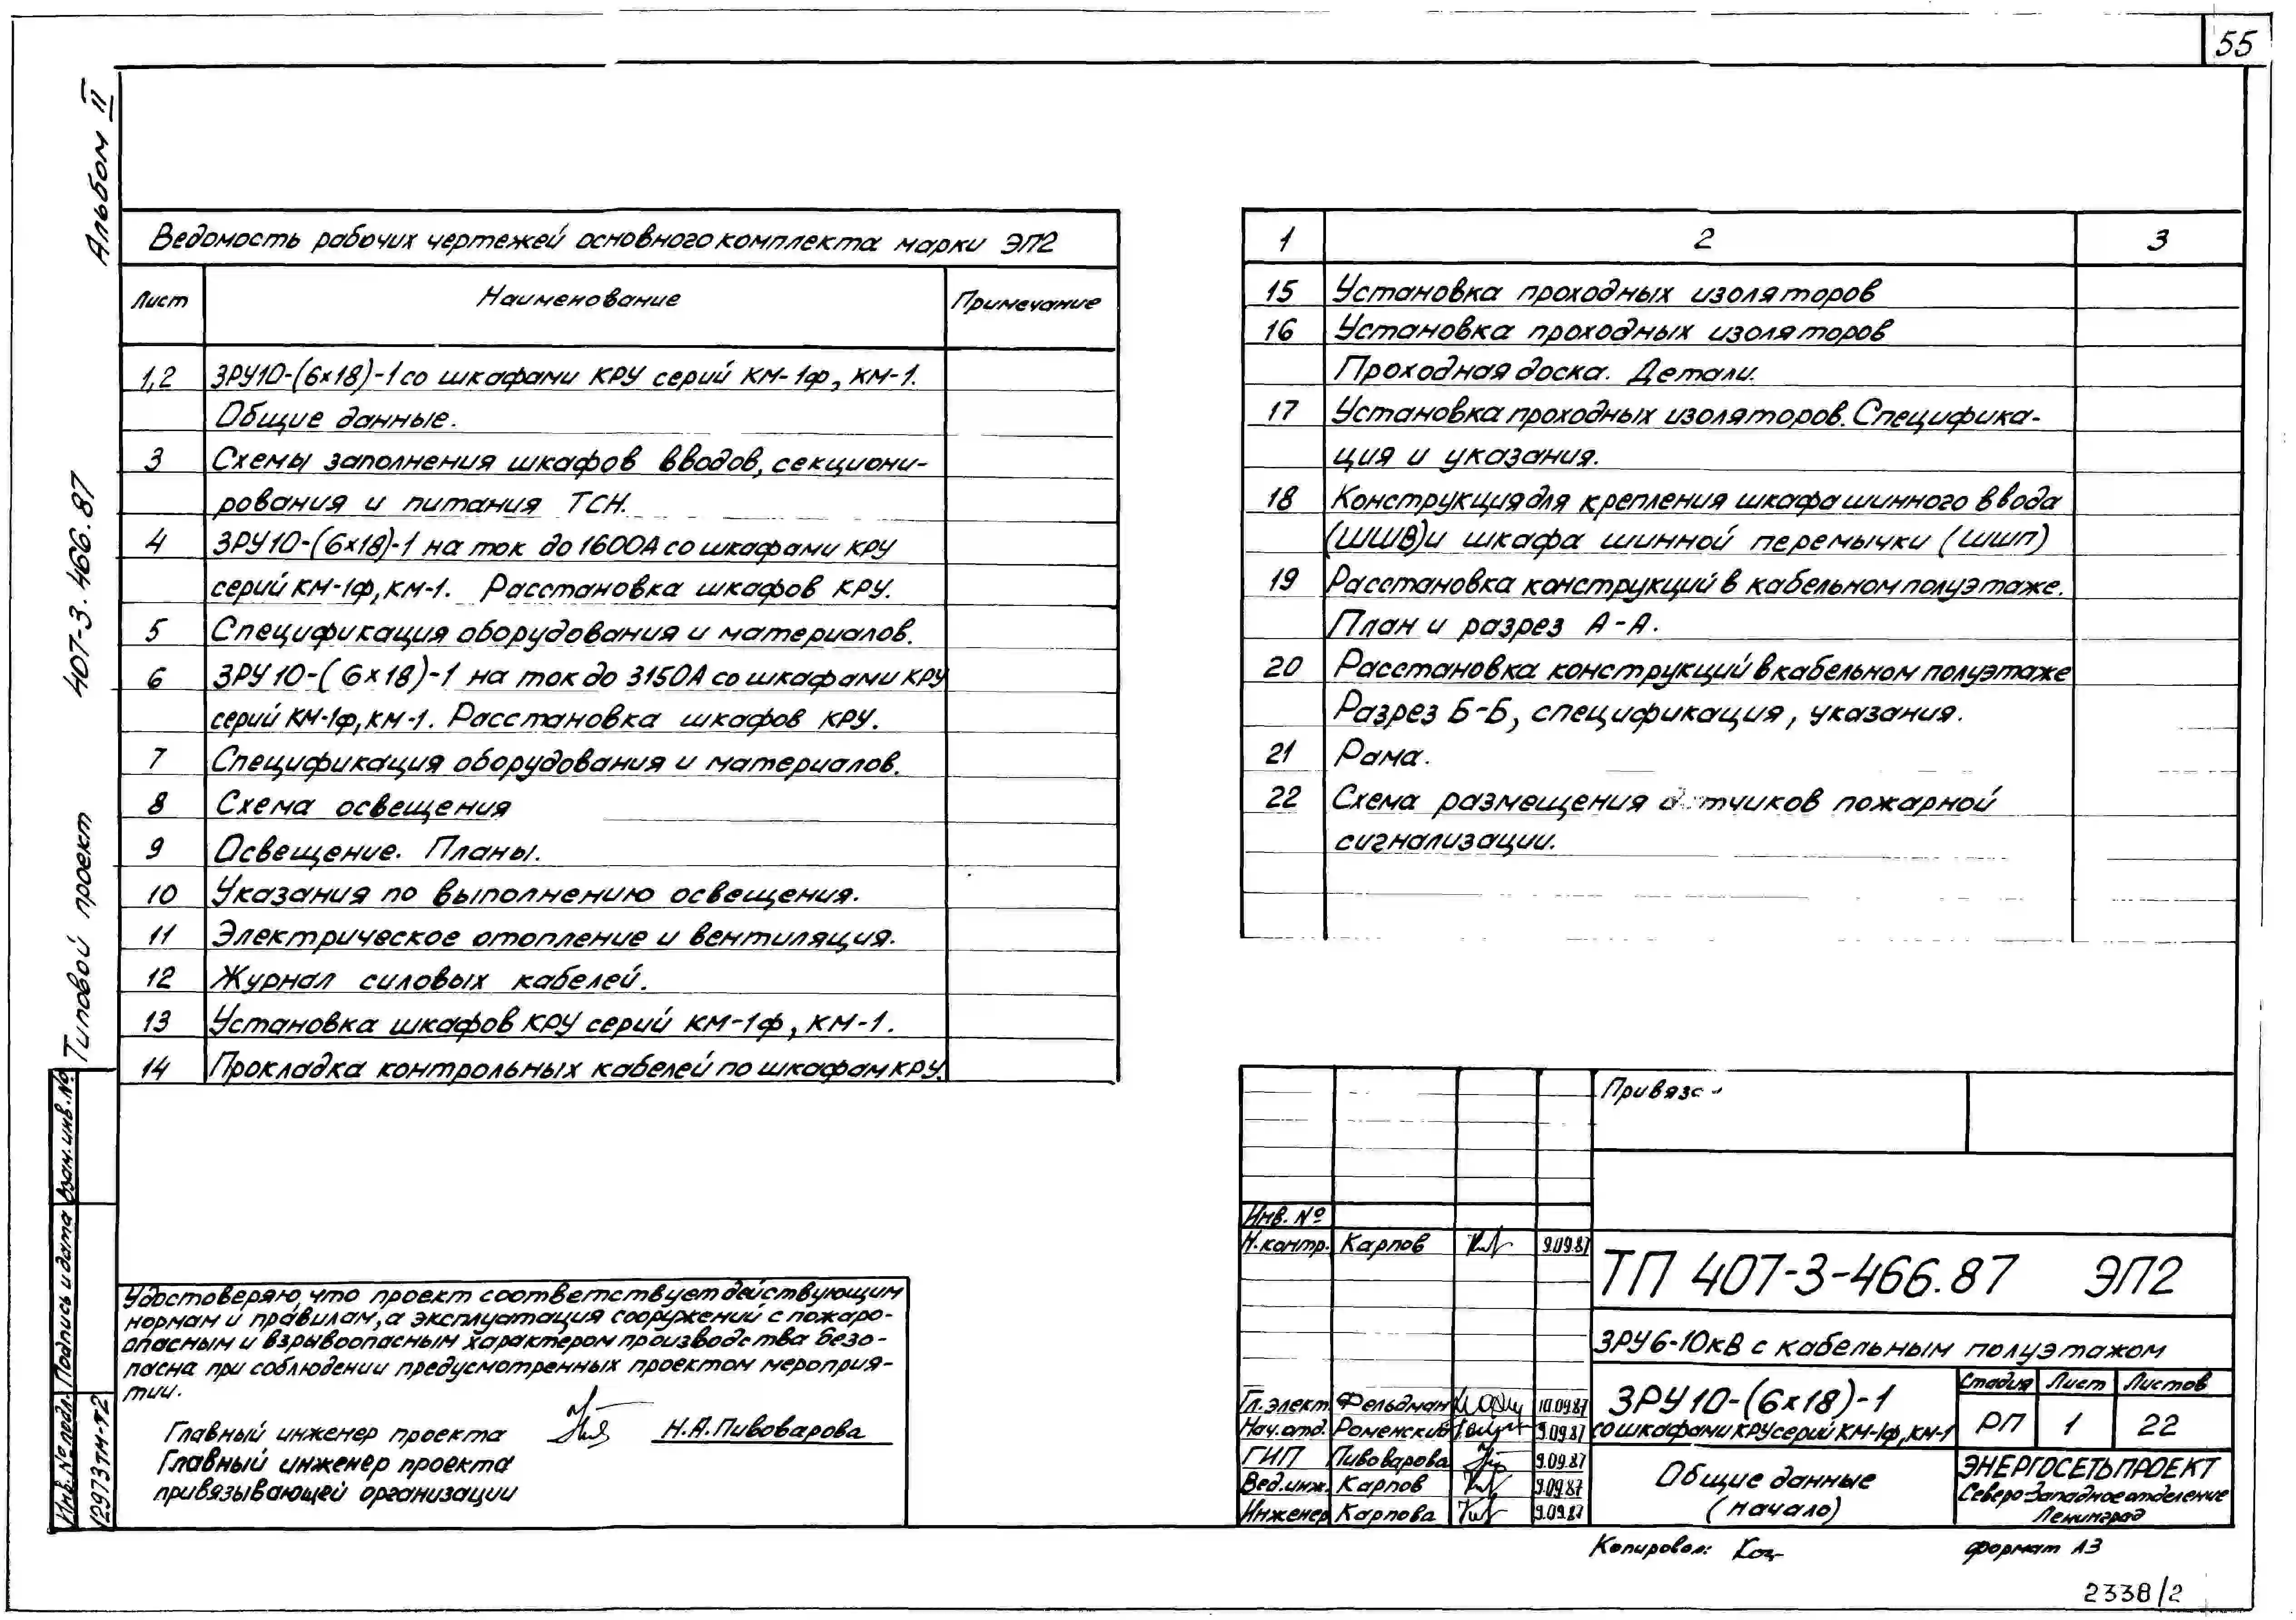 55
Альбом II
407-3.466.87
Типовой проект
Ведомость рабочих чертежей основного комплекта марки ЭП2
Лист Наименование Примечание
1,2 ЗРУ10-(6х18)-1 со шкафами КРУ серий КМ-1ф, КМ-1.
Общие данные.
3 Схемы заполнения шкафов вводов, секциони-
рования и питания ТСН.
4 ЗРУ10-(6х18)-1 на ток до 1600А со шкафами КРУ
серий КМ-1ф, КМ-1. Расстановка шкафов КРУ.
5 Спецификация оборудования и материалов.
6 ЗРУ10-(6х18)-1 на ток до 3150А со шкафами КРУ
серий КМ-1ф, КМ-1. Расстановка шкафов КРУ.
7 Спецификация оборудования и материалов.
8 Схема освещения
9 Освещение. Планы.
10 Указания по выполнению освещения.
11 Электрическое отопление и вентиляция.
12 Журнал силовых кабелей.
13 Установка шкафов КРУ серий КМ-1ф, КМ-1.
14 Прокладка контрольных кабелей по шкафам КРУ.
1 2 3
15 Установка проходных изоляторов
16 Установка проходных изоляторов
Проходная доска. Детали.
17 Установка проходных изоляторов. Специфика-
ция и указания.
18 Конструкция для крепления шкафа шинного ввода
(ШШВ) и шкафа шинной перемычки (ШШП)
19 Расстановка конструкций в кабельном полуэтаже.
План и разрез А-А.
20 Расстановка конструкций в кабельном полуэтаже
Разрез Б-Б, спецификация, указания.
21 Рама.
22 Схема размещения датчиков пожарной
сигнализации.
Удостоверяю, что проект соответствует действующим
нормам и правилам, а эксплуатация сооружений с пожаро-
опасным и взрывоопасным характером производства безо-
пасна при соблюдении предусмотренных проектом мероприя-
тий.
Главный инженер проекта Н.А.Пивоварова
Главный инженер проекта
привязывающей организации
Взам. инв. №
Подпись и дата
Инв. № подл.
12973тм-т2
Привяза
Инв. №
Н.контр. Карпов 9.09.87
ТП 407-3-466.87 ЭП2
ЗРУ 6-10кВ с кабельным полуэтажом
Гл.элект. Фельдман 10.09.87
Нач.отд. Роменский 9.09.87
ГИП Пивоварова 9.09.87
Вед.инж. Карпов 9.09.87
Инженер Карпова 9.09.87
ЗРУ10-(6х18)-1
со шкафами КРУ серий КМ-1ф, КМ-1
Стадия Лист Листов
РП 1 22
Общие данные
(начало)
ЭНЕРГОСЕТЬПРОЕКТ
Северо-Западное отделение
Ленинград
Копировал:
формат А3
2338/2